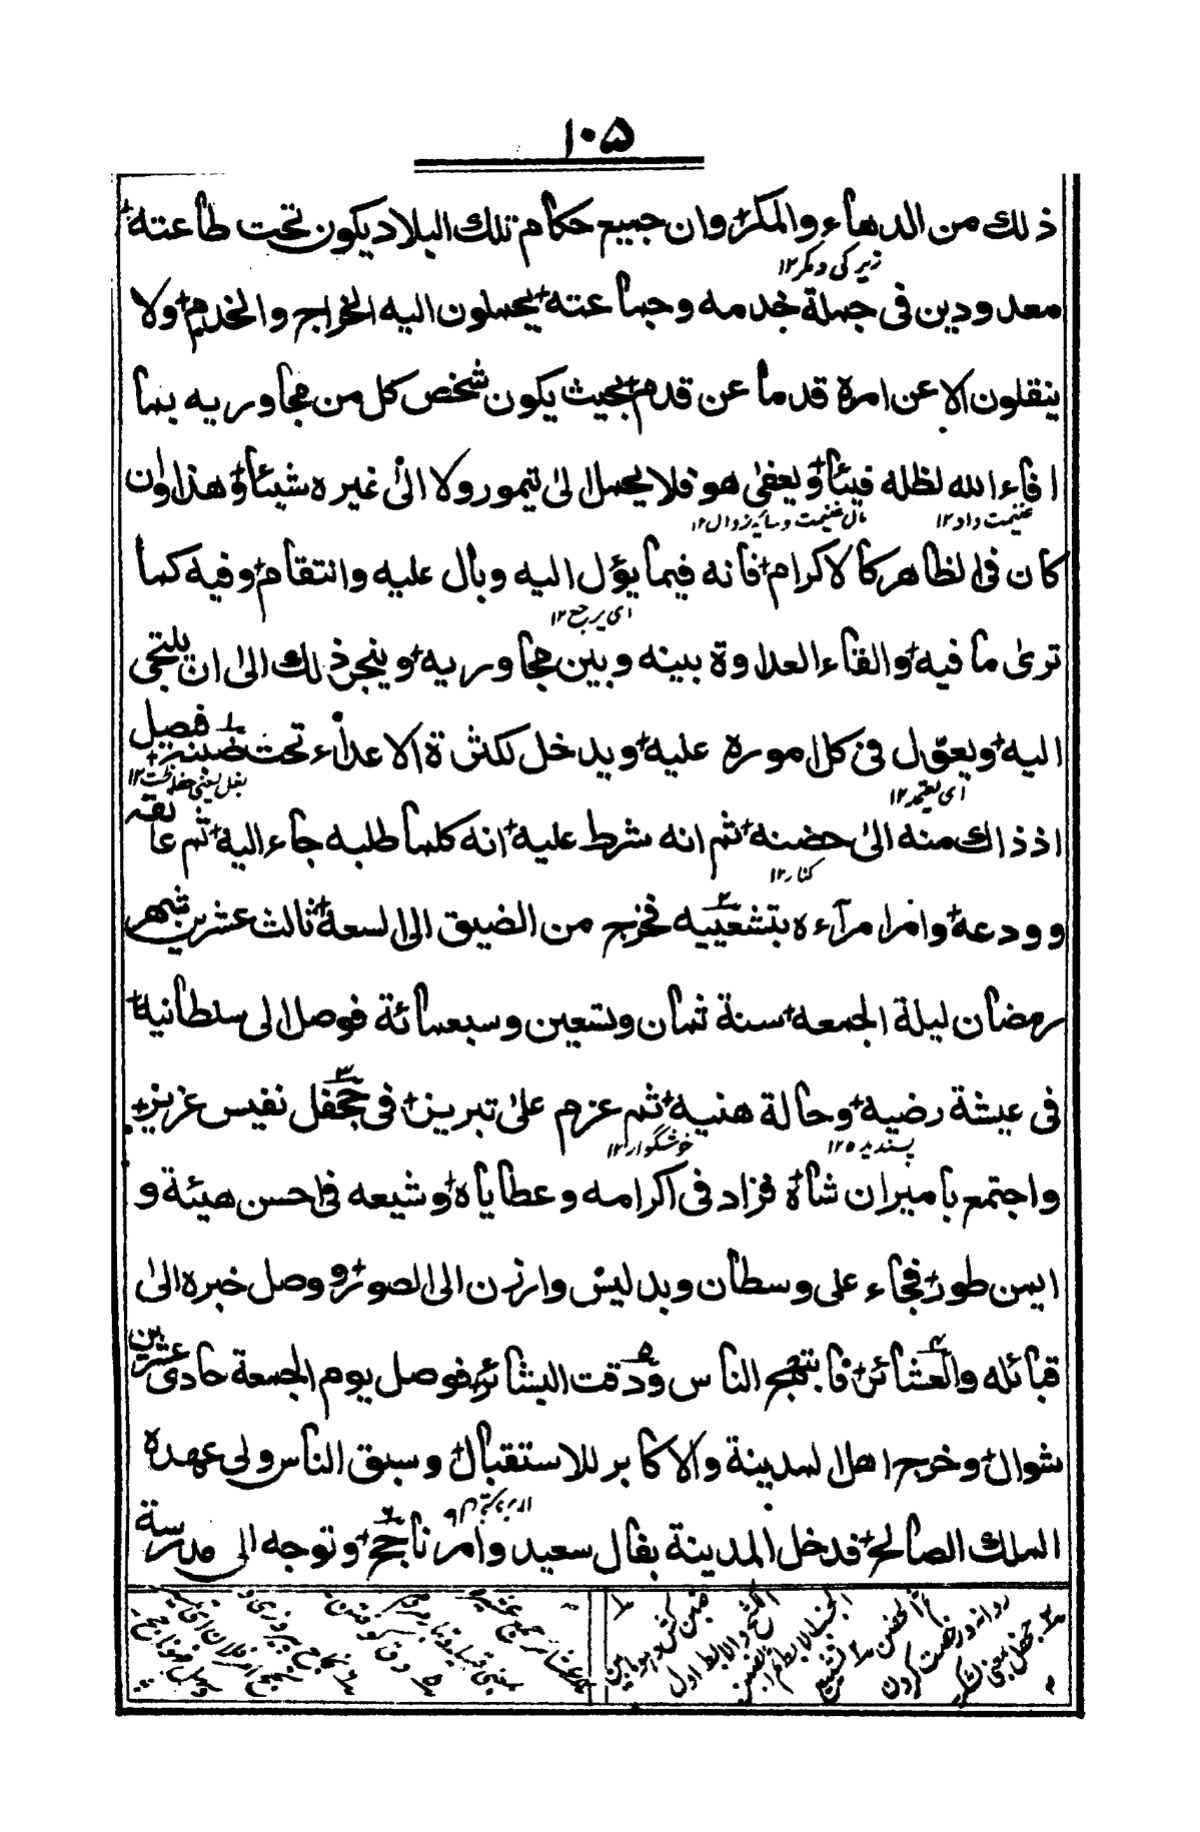 ۱۰۵
ذلك من الدهاء والمكر وان جميع حكام تلك البلاد يكون تحت طاعته
زیرکی و مکر۱۲
معدودين فى جملة خدمه وجماعته يحملون اليه الخراج والخدم ولا
ينقلون الا عن امره قدما عن قدم بحيث يكون شخص كل من مجاوريه بما
افاء الله لظله فيئا ويعفى هو فلا يحمل الى تيمور ولا الى غيره شيئا وهذا وان
غنیمت داد۱۲ مال غنیمت و سایه زوال۱۲
كان فى الظاهر كالاكرام فانه فيما يؤل اليه وبال عليه وانتقام وفيه كما
ای یرجع۱۲
ترى ما فيه والقاء العداوة بينه وبين مجاوريه وينجر ذلك الى ان يلتجى
اليه ويعوّل فى كل اموره عليه ويدخل لكثرة الاعداء تحت ضبنه فصل
ای یعتمد۱۲ بغل یعنی حفاظت۱۲
اذ ذاك منه الى حضنه ثم انه شرط عليه انه كلما طلبه جاء اليه ثم عانقه
کنار۱۲
وودعه وامر امرآءه بتشييعه فخرج من الضيق الى السعة ثالث عشرين شهر
رمضان ليلة الجمعه سنة ثمان وتسعين وسبعمائة فوصل الى سلطانيه
فى عيشة رضيه وحالة هنيه ثم عزم على تبريز فى جحفل نفيس عزيز
پسندیده۱۲ خوشگوار۱۲
واجتمع باميران شاه فزاد فى اكرامه وعطاياه وشيعه فى احسن هيئة و
ايمن طور فجاء على وسطان وبدليس وارزن الى الصور ووصل خبره الى
قبائله والعشائر فابتهج الناس ودقت البشائر فوصل يوم الجمعة حادى عشرين
شوال وخرج اهل المدينة والاكابر للاستقبال وسبق الناس ولى عهده
الملك الصالح فدخل المدينة بفال سعيد وامر ناجح وتوجه الى مدرسة